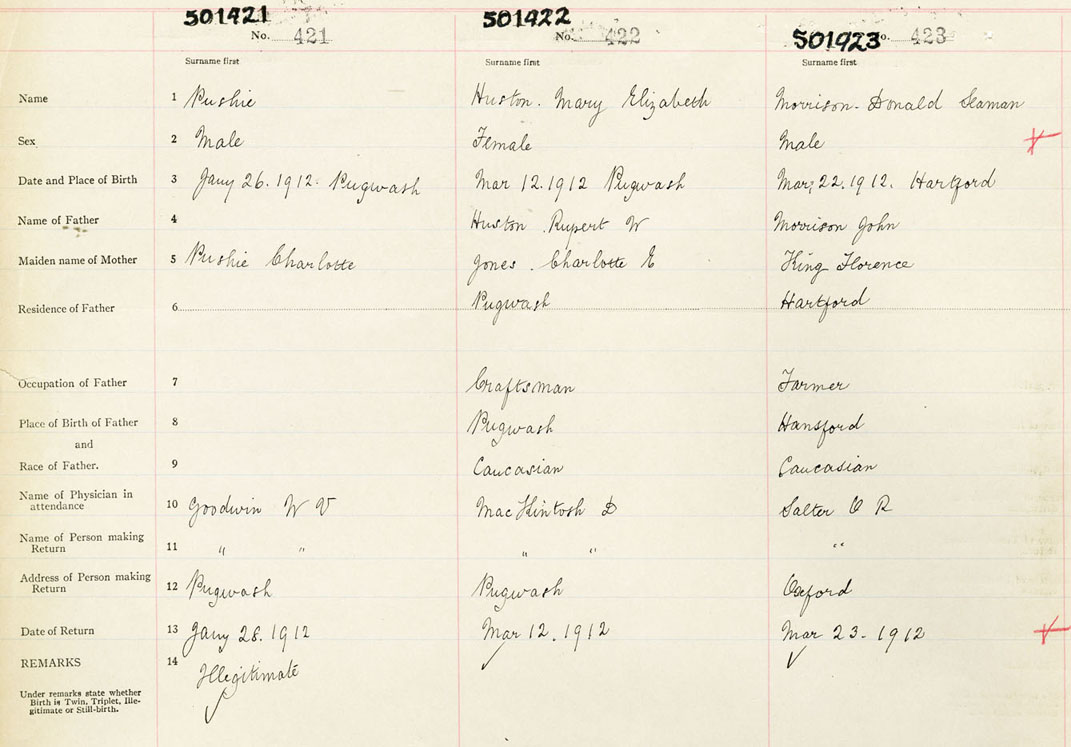 501421 501422 501423
No. 421 No. 422 No. 423
Surname first Surname first Surname first
Name 1 Pushie Huston. Mary Elizabeth Morrison- Donald Seaman
Sex 2 Male Female Male
Date and Place of Birth 3 Jany 26. 1912. Pugwash Mar 12. 1912 Pugwash Mar; 22. 1912. Hartford
Name of Father 4 Huston. Rupert W Morrison John
Maiden name of Mother 5 Pushie Charlotte Jones. Charlotte E King Florence
Residence of Father 6 Pugwash Hartford
Occupation of Father 7 Craftsman Farmer
Place of Birth of Father 8 Pugwash Hansford
and
Race of Father. 9 Caucasian Caucasian
Name of Physician in
attendance 10 Goodwin W V MacKintosh D Salter O R
Name of Person making
Return 11 " " " " "
Address of Person making
Return 12 Pugwash Pugwash Oxford
Date of Return 13 Jany 28. 1912 Mar 12. 1912 Mar 23- 1912
REMARKS 14 Illegitimate
Under remarks state whether
Birth is Twin, Triplet, Ille-
gitimate or Still-birth.